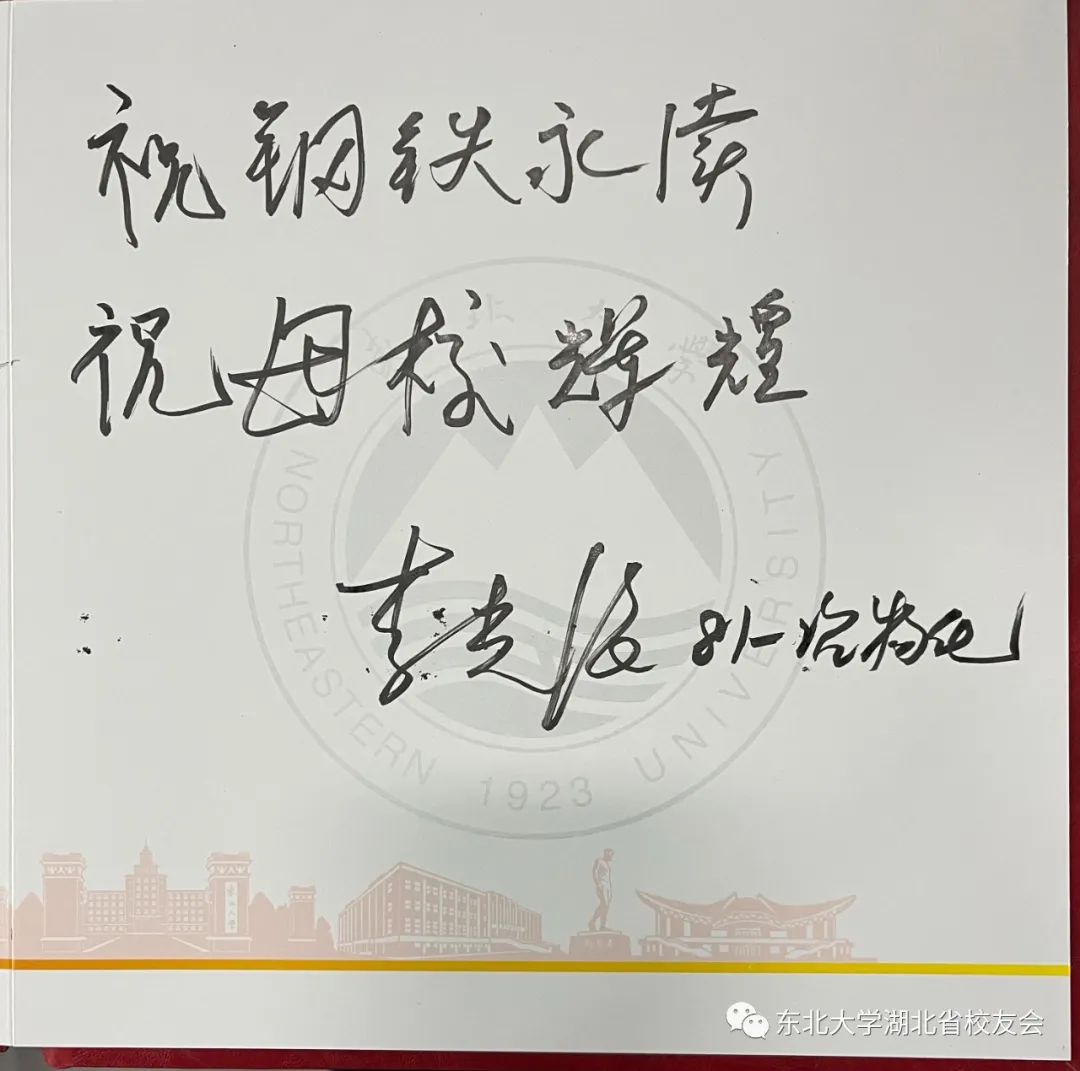 祝钢铁永续
祝母校辉煌
李光强 81-冶物化
NORTHEASTERN UNIVERSITY
1923
东北大学湖北省校友会